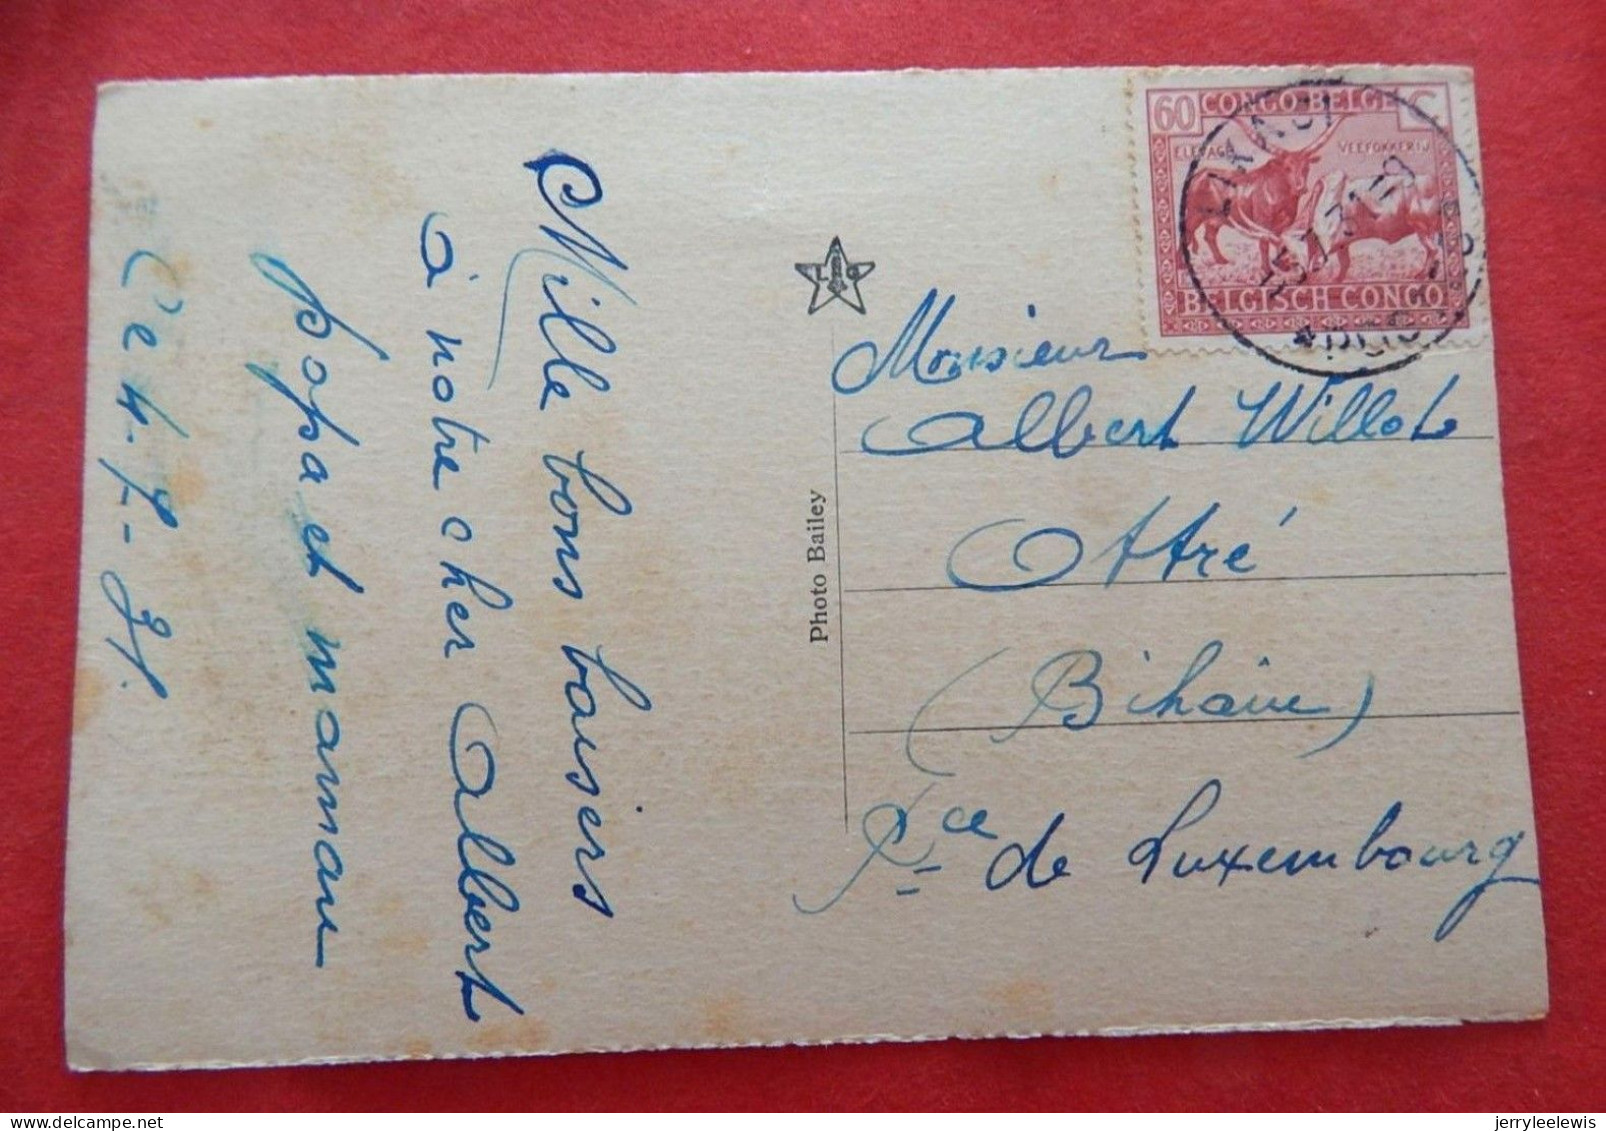 Mille bons baisers
à notre cher Albert
papa et maman
Le 4-7-31.
60 CONGO BELGE C
ELEVAGE VEEFOKKERIJ
BELGISCH CONGO
LIKASI
31
L O
Photo Bailey
Monsieur
Albert Willot
Ottré
(Bihain)
Pce de Luxembourg
delcampe.net
jerryleelewis